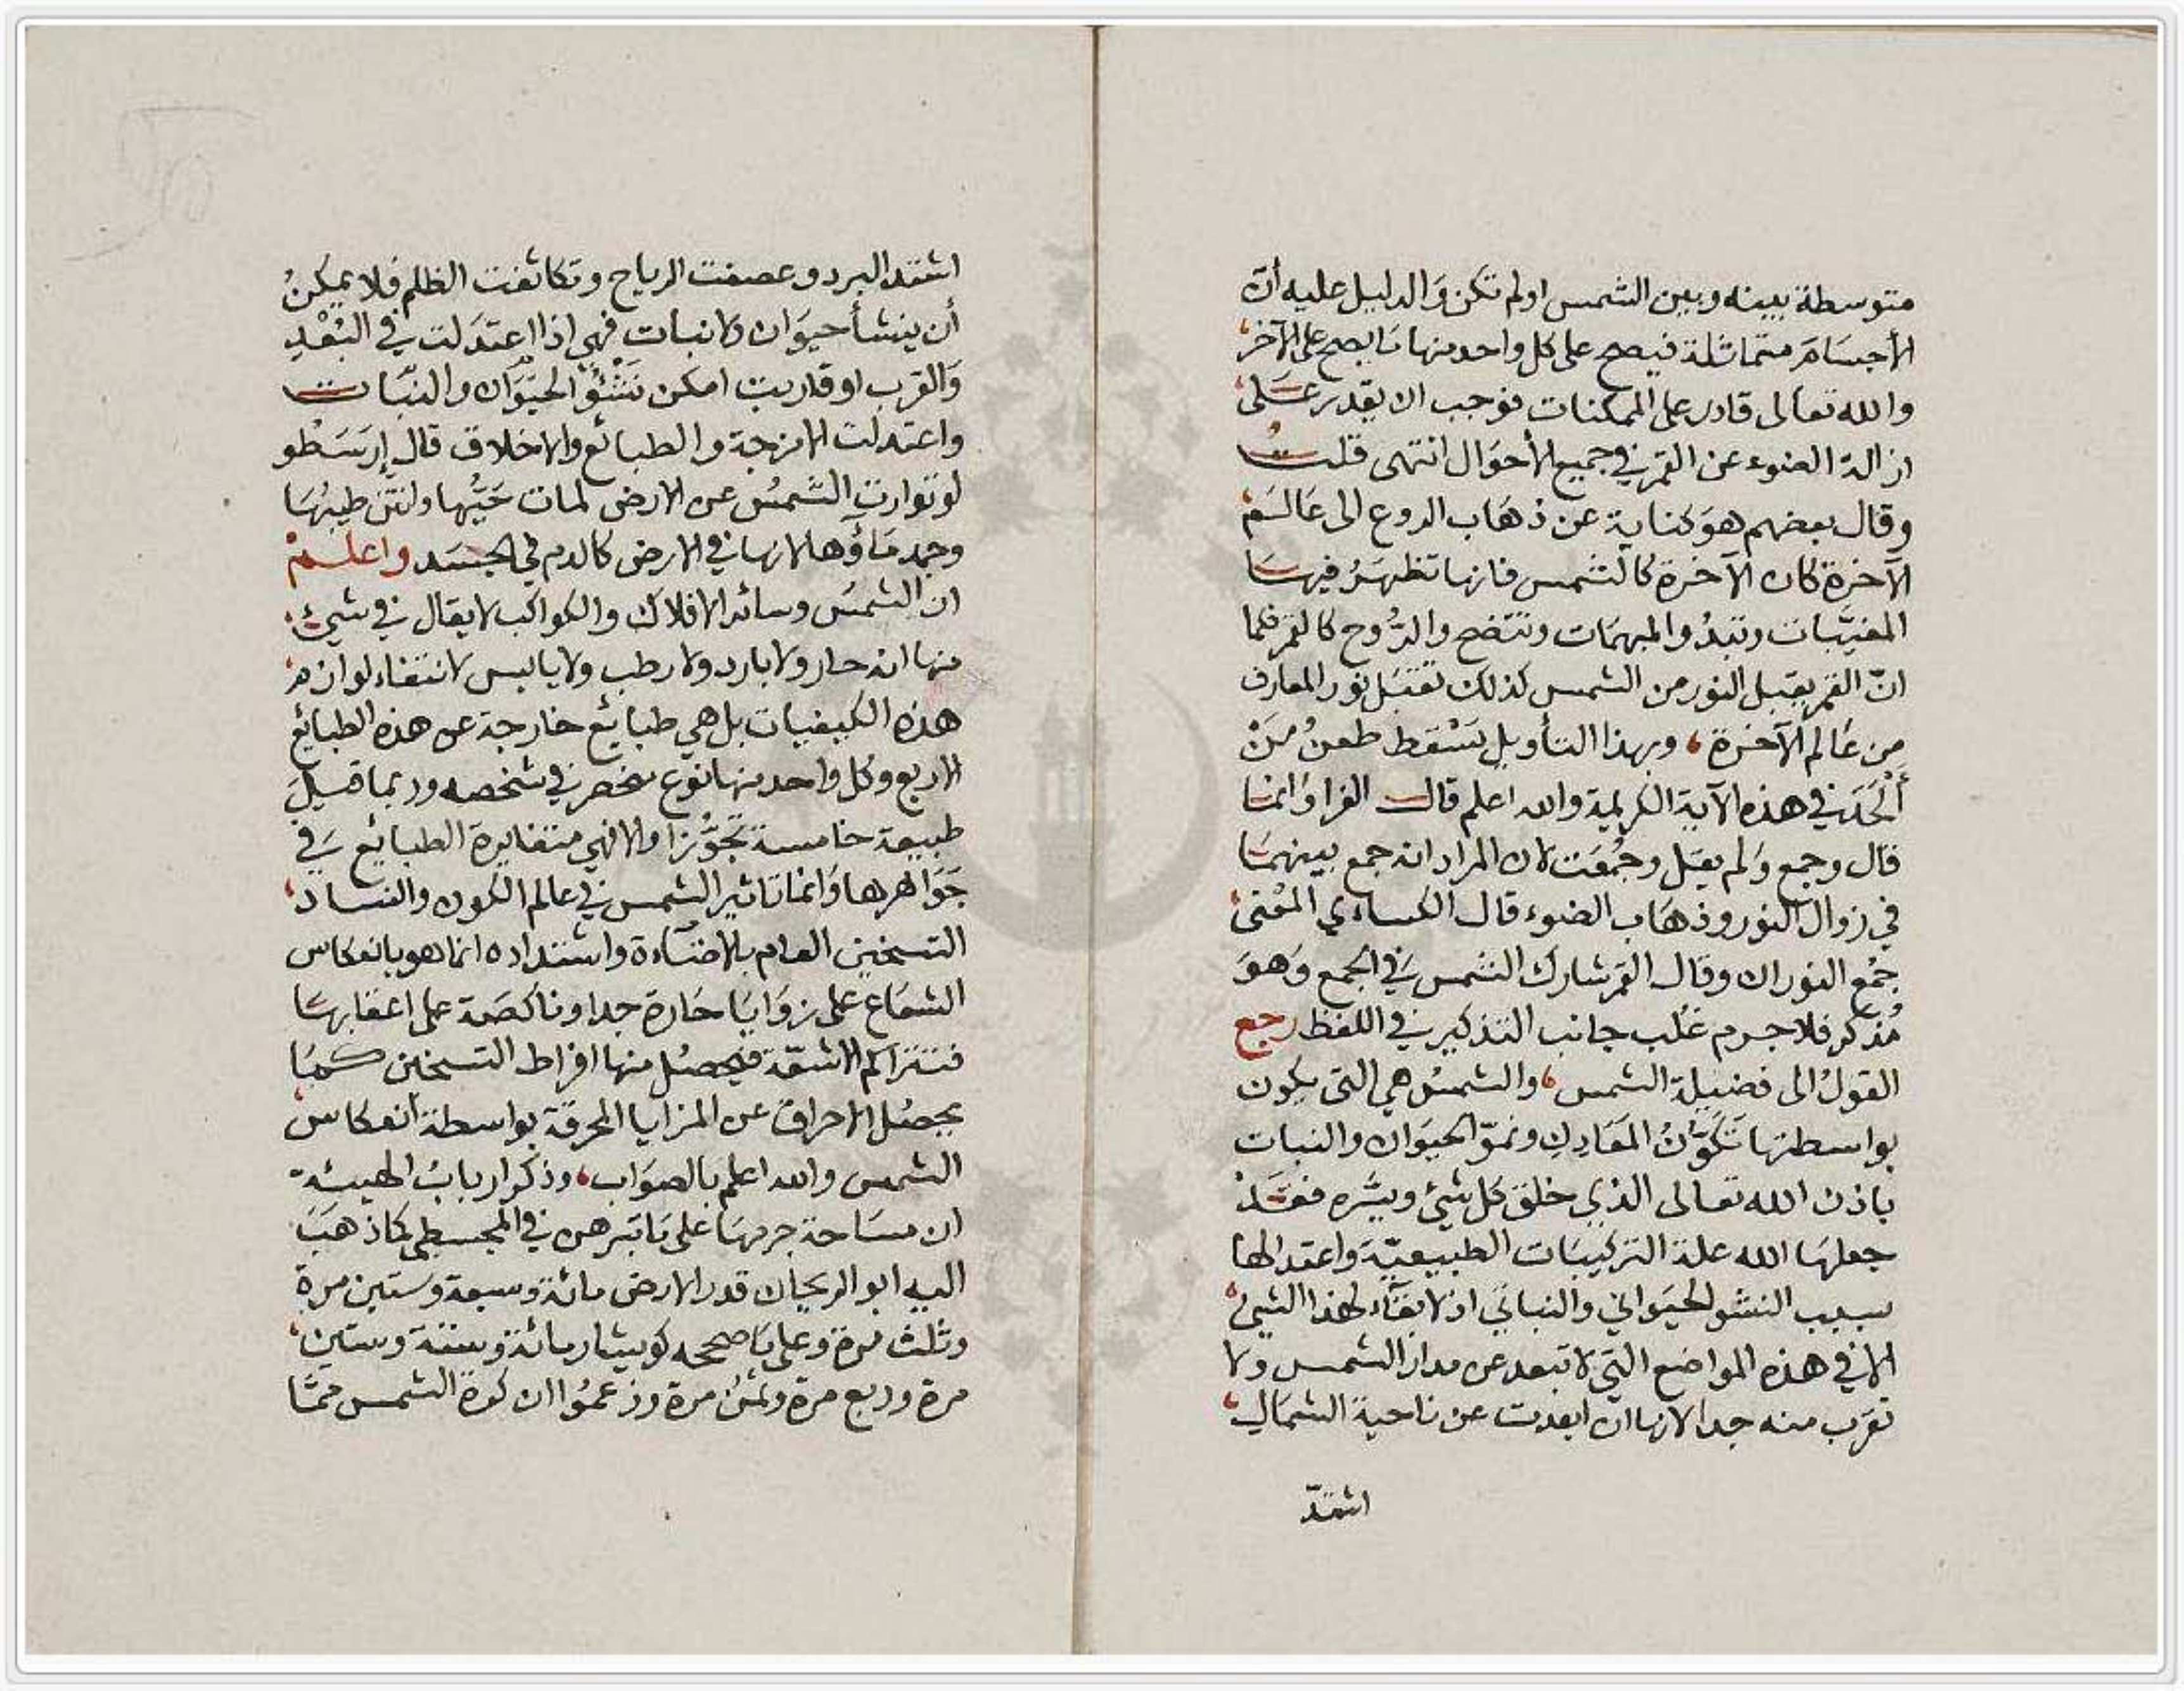 متوسطة بينه وبين الشمس اولم تكن وَالدليل عليه أنّ
الأجسَام متماثلة فيصح على كل واحد منها مَا يصح على الآخر،
والله تعالى قادر على الممكنات فوجب ان يقدر عَلى،
ازالة الضوء عن القمر في جميع الأحوَال انتهى قلتُ
وقال بعضهم هوَ كناية عن ذهَاب الروع الى عَالَمْ
الآخرة كان الآخرة كالشمس فانها تظهَرُ فيهَا
المغيّبات وتبدُ والمبهمَات وتتضح والرُّوح كالقمر فكما
انّ القمر يقبل النور من الشمس كذلك تقتبَل نور المعارف
من عَالم الآخرة ، وبهذا التأويل يَسْقط طعنُ مَنْ
ألْحَدَ في هذه الآية الكريمة والله اعلم قالَ الفرا وَانما
قال وجمع وَلم يقل وجُمعَت لان المراد انه جمع بينهمَا
في زوال النور وذهَاب الضوء قال الكساءي المعْنى،
جمْع النوران وقال القمر شارك الشمس في الجمع وَهوَ
مُذكر فلا جرم غلب جانب التذكير في اللفظ رجع
القولُ الى فضيلة الشمس ، والشمسُ هي التى يكون
بواسطتها تَكَوُّنُ المعَادِنِ ونموّ الحيوَان والنبات
باذن الله تعالى الذي خلق كل شيئ ويسَّره فقَدْ
جعلهَا الله علة التركيبَات الطبيعيّة وَاعتدالها
سبب النشو الحيَواني والنباتي اذ لا بقَآء لهذا الشيئ،
الا في هذه المواضع التي لا تبعد عن مدار الشمس ولا
تقرَب منه جدا لانها ان ابعدت عن ناحية الشمَالِ،
اشتدّ
اشتد البرد وعصفت الرياح وتكاثفت الظلم فلا يمكنُ
أن ينشأ حيوَان ولا نبات فهي اذا اعتدَلت في البُعْدِ
وَالقرب او قاربت امكن نَشْؤُ الحيَوَان والنبَّات
واعتدلت الامزجة والطبائع والاخلاق قال إرَسَطو
لو توارت الشمسُ عن الارض لمات حَيُّها ولنتن طيبُهَا
وجمد مَاؤُها لانها في الارض كالدم في الجسَد واعلمْ
ان الشمسُ وسائر الافلاك والكواكب لا يقال في شيئ،
منها انه حار ولا بارد ولا رطب ولا يابس لانتفاء لوازم
هذه الكيفيات بل هي طبايع خارجة عن هذه الطبايع
الاربع وكل واحد منها نوع منحصر في شخصه وربما قيلَ
طبيعة خامسة تجَوُّزا والا فهي متغايرة الطبايع في
جَوَاهرها وَانما تاثير الشمس في عالم الكون والفساد،
التسخين العام بالاضَآءة واشتداده انما هو بانعكاس
الشعَاع على زوَايَا حَارة جدا وناكصَة على اعقابهَا
فتتراكم الاشعّة فيحصُل منها افراط التسخين كما
يحصُل الاحراق عن المزايا المحرقة بواسطة انعكاس
الشمس والله اعلم بالصوَاب ، وذكر اربابُ الهيئة
ان مسَاحة جرمهَا على مَا تبَرهن في المجسطى كما ذهَبَ
اليه ابو الريحان قدر الارض مائة وسبعة وستين مرة
وثلث مرة وعلى مَا صححه كوشيار مائة وستة وستين،
مرة وربع مرة وثمُن مرة وزعمُوا ان كورة الشمس ممَّا